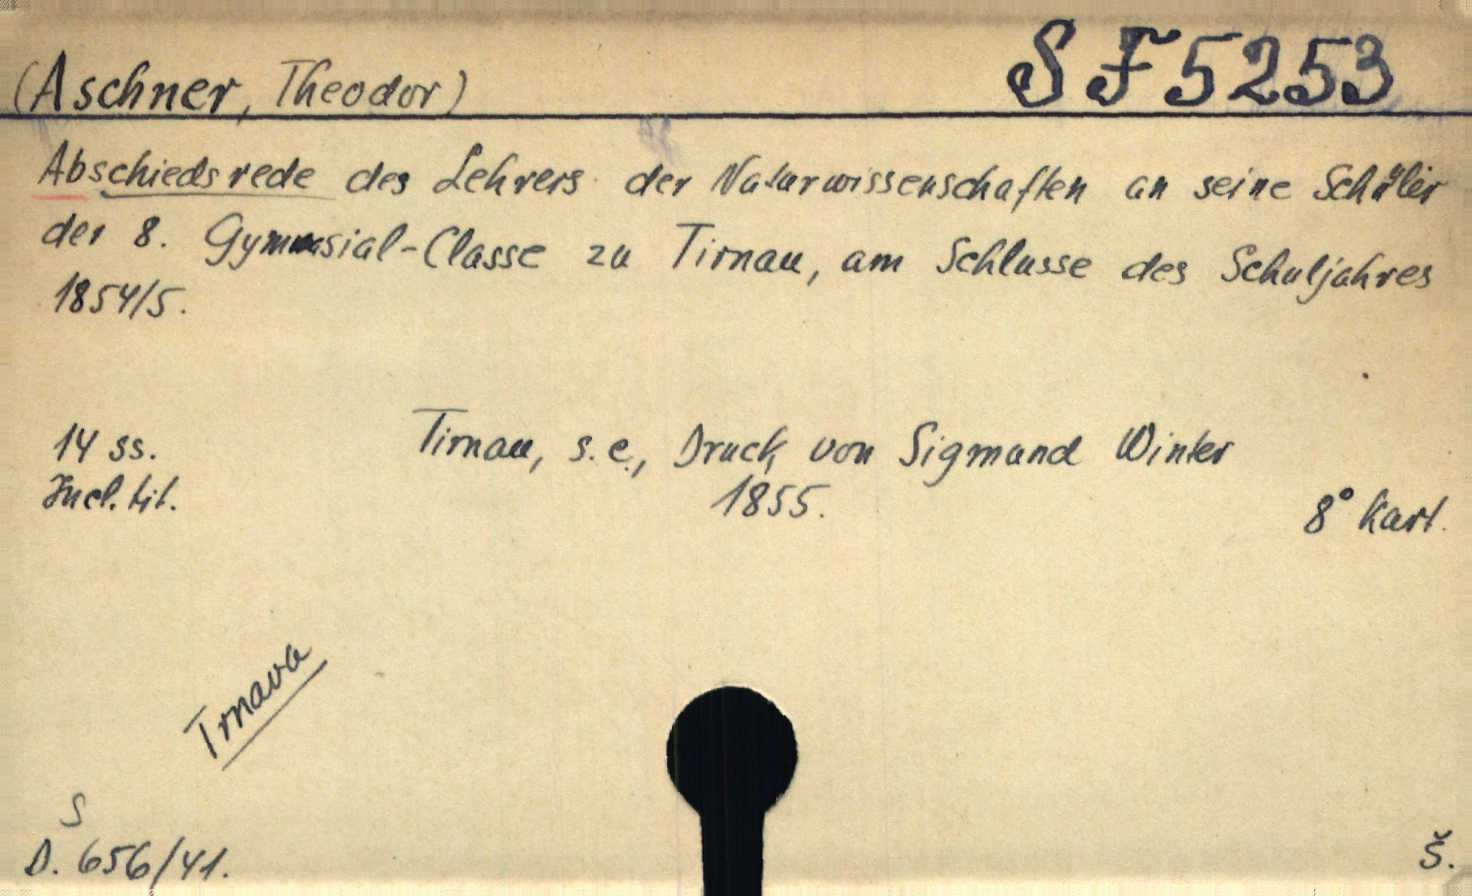 (Aschner, Theodor) SF5253
Abschiedsrede des Lehrers der Naturwissenschaften an seine Schüler
der 8. Gymnasial-Classe zu Tirnau, am Schlusse des Schuljahres
1854/5.
14 ss. Tirnau, s. e., Druck von Sigmund Winter
Incl. tit. 1855. 8° Kart.
Trnava
S
D. 656/41. Š.